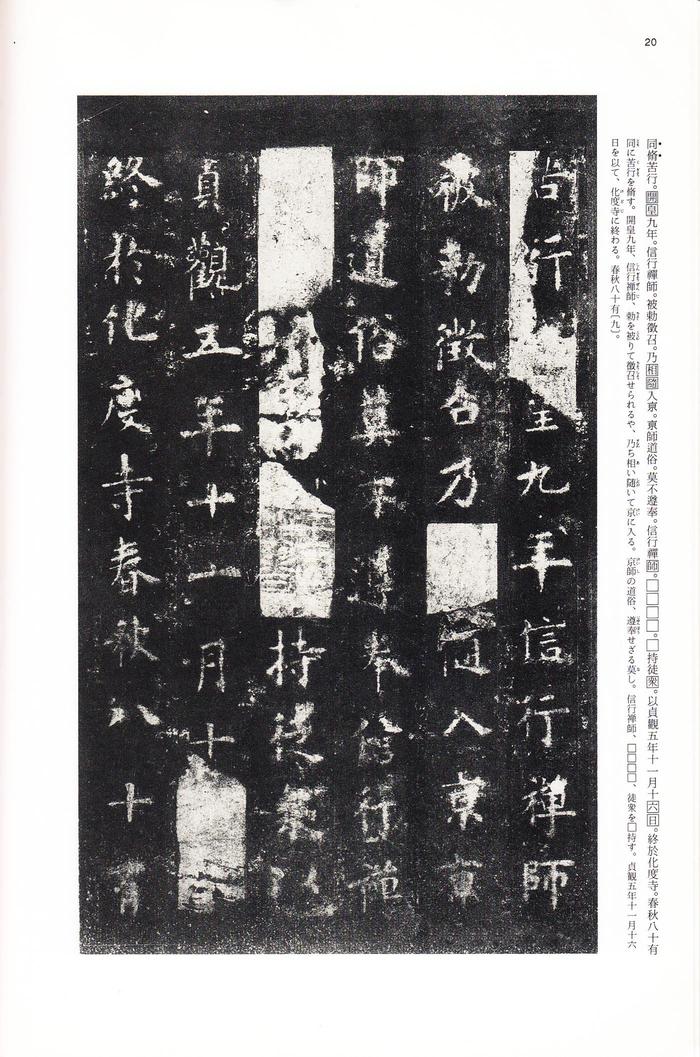 20
同脩苦行。開皇九年。信行禪師。被勅徵召。乃相隨入京。京師道俗。莫不遵奉。信行禪師。□□□□。□持徒衆。以貞觀五年十一月十六日。終於化度寺。春秋八十有
同に苦行を脩す。開皇九年、信行禅師、勅を被りて徴召せられるや、乃ち相い随いて京に入る。京師の道俗、遵奉せざる莫し。信行禅師、□□□□、徒衆を□持す。貞観五年十一月十六
日を以て、化度寺に終わる。春秋八十有〔九〕。
行 皇九年信行禪師
被勅徵召乃 随入京京
師道俗莫不遵奉信行禪
持徒衆以
貞觀五年十一月十
終於化度寺春秋八十有